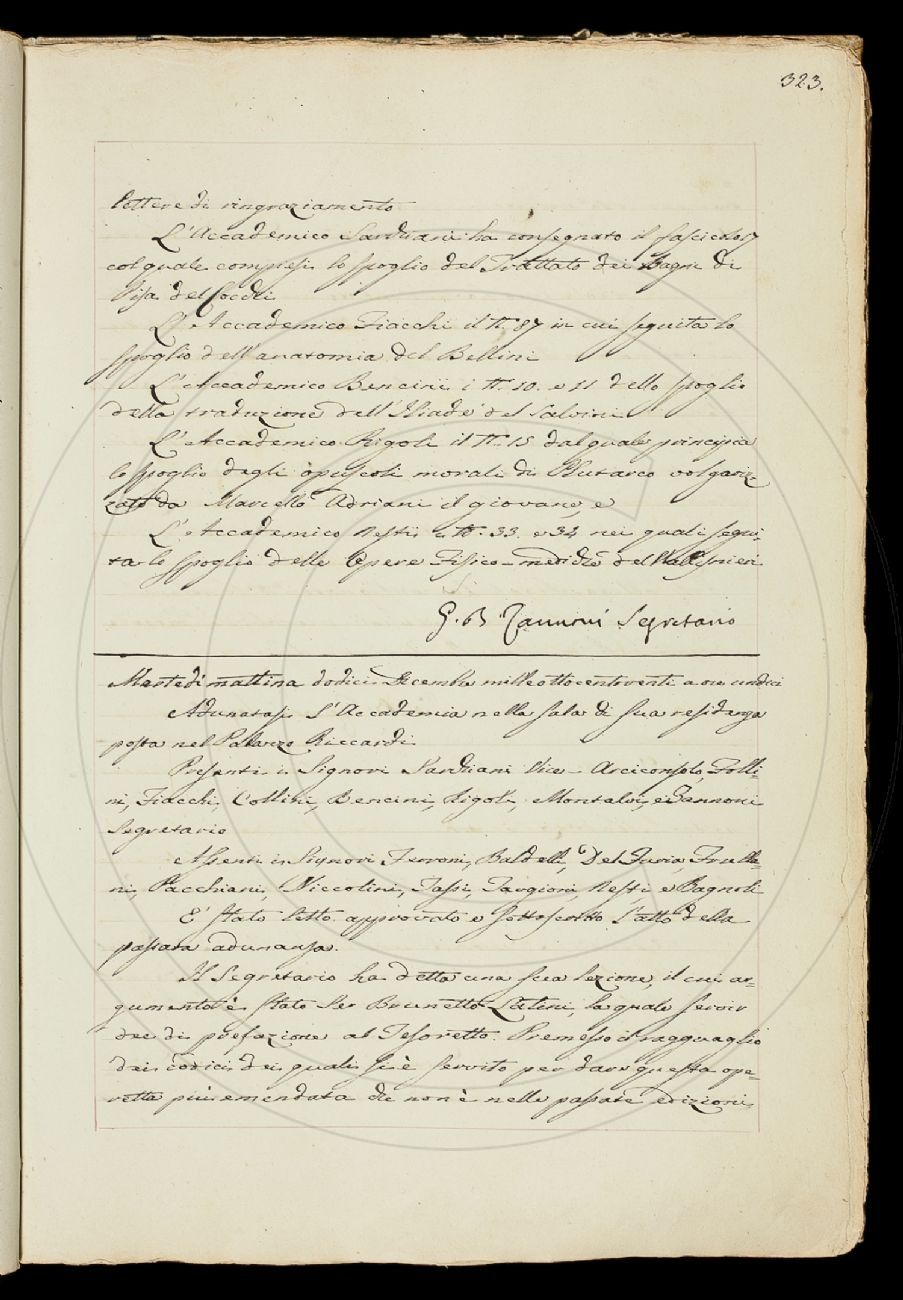 323.
lettere di ringraziamento
L'Accademico Sarchiani ha consegnato il fascicolo 7
col quale compiesi lo spoglio del Trattato dei Bagni di
Pisa del Cocchi
L'Accademico Fiacchi il N. 87 in cui seguita lo
spoglio dell'anatomia del Bellini
L'Accademico Bencini i N. 10. e 11 dello spoglio
della traduzione dell'Iliade del Salvini
L'Accademico Rigoli il N. 15 dal quale principia
lo spoglio degli opuscoli morali di Plutarco volgariz-
zato da Marcello Adriani il giovane, e
L'Accademico Nesti i N. 33. e 34 nei quali segui-
ta lo spoglio delle Opere Fisico-mediche del Vallisnieri
G. B. Zannoni Segretario
Martedì mattina dodici Decembre mille ottocentoventi a ore undici
Adunatasi l'Accademia nella sala di sua residenza
posta nel Palazzo Riccardi
Presenti i Signori Sarchiani Vice-Arciconsolo, Folli-
ni, Fiacchi, Collini, Bencini, Rigoli, Montalvi, e Zannoni
Segretario
Assenti i Signori Ferroni, Baldelli, Del Furia, Frulla-
ni, Pacchiani, Niccolini, Tassi, Targioni, Nesti e Bagnoli
E' stato letto approvato e sottoscritto l'atto della
passata adunanza.
Il Segretario ha detta una sua lezione, il cui ar-
gumento è stato Ser Brunetto Latini, la quale servir
dee di prefazione al Tesoretto. Premesso il ragguaglio
dei codici dei quali si è servito per dare questa ope-
retta più emendata che non è nelle passate edizioni,